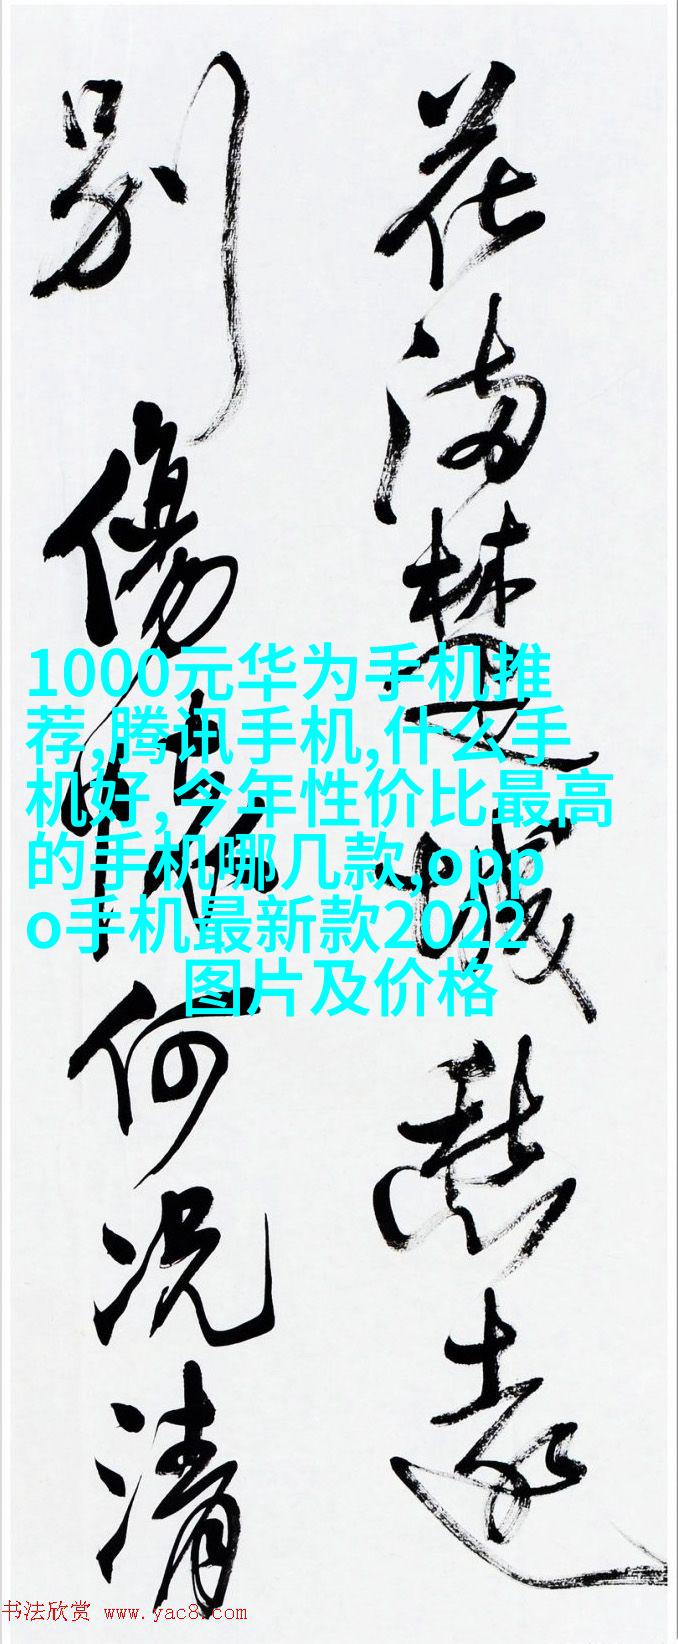 花滿楚城愁遠
別傷情何况清
1000元华为手机推
荐,腾讯手机,什么手
机好,今年性价比最高
的手机哪几款,opp
o手机最新款2022
图片及价格
书法欣赏 www.yac8.com